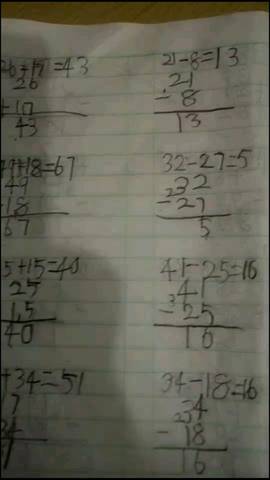 26+17=43
26
+17
43
49+18=67
49
18
67
5+15=40
25
15
40
+34=51
7
34
21-8=13
21
-8
13
32-27=5
32
-27
5
41-25=16
41
-25
16
34-18=16
34
-18
16